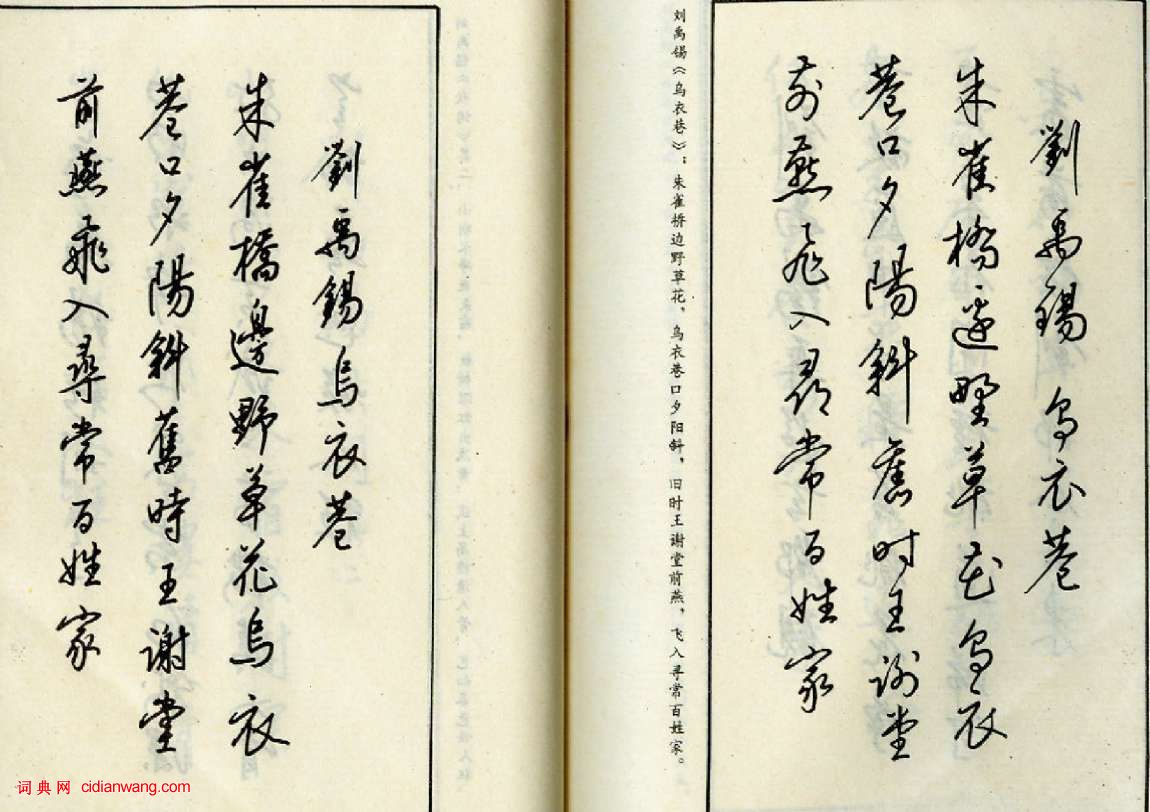 劉禹錫 烏衣巷
朱雀橋邊野草花烏衣
巷口夕陽斜舊時王謝堂
前燕飛入尋常百姓家
刘禹锡《乌衣巷》：朱雀桥边野草花，乌衣巷口夕阳斜，旧时王谢堂前燕，飞入寻常百姓家。
劉禹錫烏衣巷
朱雀橋邊野草花烏衣
巷口夕陽斜舊時王謝堂
前燕飛入尋常百姓家
词典网 cidianwang.com